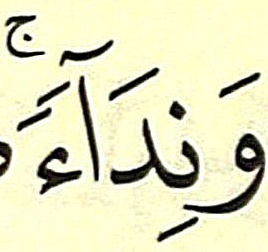 وَنِدَآءً ۚ